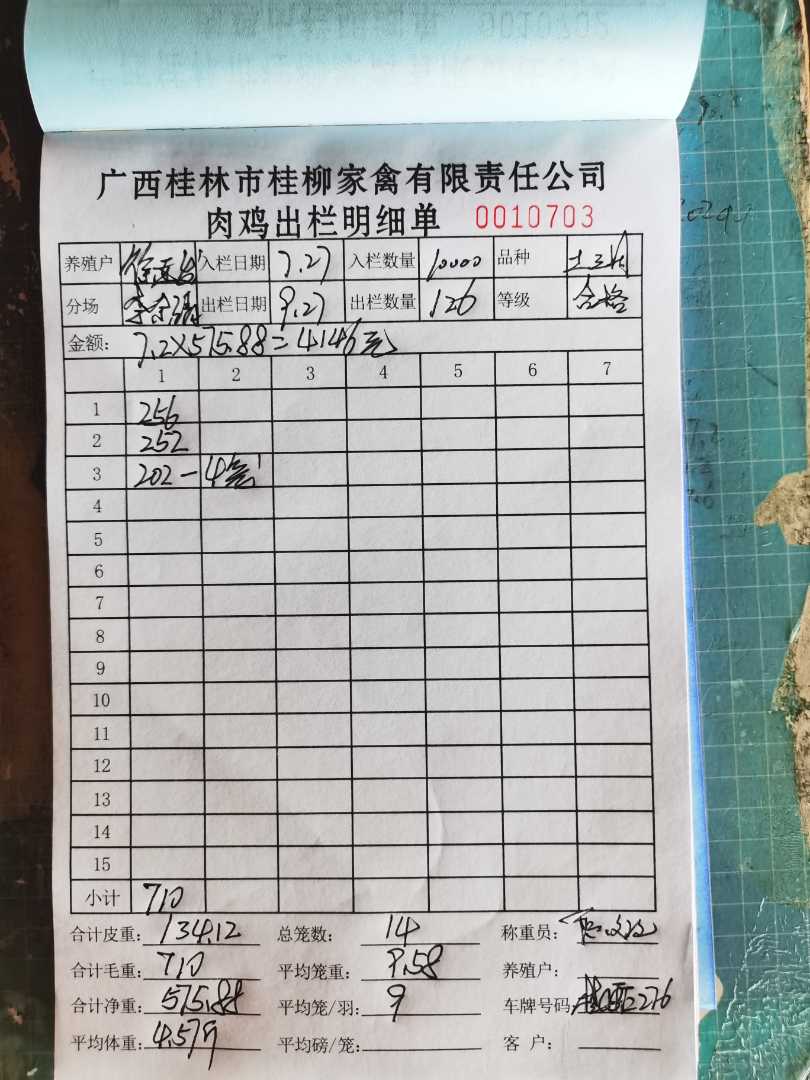 广西桂林市桂柳家禽有限责任公司
肉鸡出栏明细单 0010703
养殖户 入栏日期 7.27 入栏数量 10000 品种
分场 出栏日期 9.27 出栏数量 126 等级 合格
金额: 7.2×575.88=4146元
1 2 3 4 5 6 7
1 256
2 252
3 202-4
4
5
6
7
8
9
10
11
12
13
14
15
小计 710
合计皮重: 134.12 总笼数: 14 称重员:
合计毛重: 710 平均笼重: 9.58 养殖户:
合计净重: 575.88 平均笼/羽: 9 车牌号码: 276
平均体重: 4.579 平均磅/笼: 客 户: